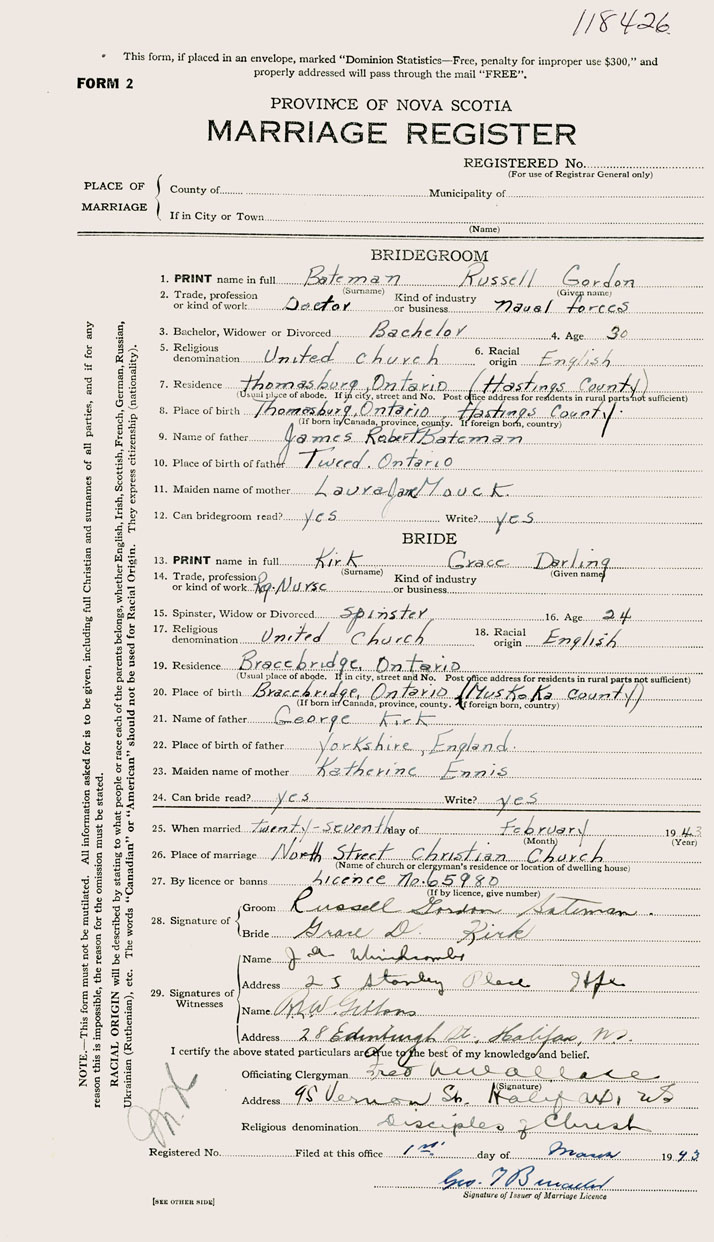 118426
This form, if placed in an envelope, marked “Dominion Statistics—Free, penalty for improper use $300,” and
properly addressed will pass through the mail “FREE”.
FORM 2
PROVINCE OF NOVA SCOTIA
MARRIAGE REGISTER
REGISTERED No.
(For use of Registrar General only)
PLACE OF MARRIAGE
County of Municipality of
If in City or Town
(Name)
BRIDEGROOM
1. PRINT name in full Bateman Russell Gordon
(Surname) (Given name)
2. Trade, profession or kind of work Doctor Kind of industry or business naval forces
3. Bachelor, Widower or Divorced Bachelor 4. Age 30
5. Religious denomination United church 6. Racial origin English
7. Residence Thomasburg, Ontario (Hastings County)
(Usual place of abode. If in city, street and No. Post office address for residents in rural parts not sufficient)
8. Place of birth Thomasburg, Ontario, Hastings County.
(If born in Canada, province, county. If foreign born, country)
9. Name of father James Robert Bateman
10. Place of birth of father Tweed. Ontario
11. Maiden name of mother Laura Jane Mouck.
12. Can bridegroom read? yes Write? yes
BRIDE
13. PRINT name in full Kirk Grace Darling
(Surname) (Given name)
14. Trade, profession or kind of work Rg. Nurse Kind of industry or business
15. Spinster, Widow or Divorced Spinster 16. Age 24
17. Religious denomination United Church 18. Racial origin English
19. Residence Bracebridge, Ontario
(Usual place of abode. If in city, street and No. Post office address for residents in rural parts not sufficient)
20. Place of birth Bracebridge, Ontario (Muskoka County)
(If born in Canada, province, county. If foreign born, country)
21. Name of father George Kirk
22. Place of birth of father Yorkshire, England.
23. Maiden name of mother Katherine Ennis
24. Can bride read? yes Write? yes
25. When married twenty-seventh day of February 1943
(Month) (Year)
26. Place of marriage North Street Christian Church
(Name of church or clergyman's residence or location of dwelling house)
27. By licence or banns Licence No. 65980
(If by licence, give number)
28. Signature of
Groom Russell Gordon Bateman.
Bride Grace D. Kirk
29. Signatures of Witnesses
Name
Address 25 Stanley Place Hfx
Name M.W. Gibbons
Address 28 Edinburgh St., Halifax, N.S.
I certify the above stated particulars are true to the best of my knowledge and belief.
Officiating Clergyman Fred W Wallace
(Signature)
Address 95 Vernon St. Halifax, N.S
Religious denomination Disciples of Christ
Registered No. Filed at this office 1st day of March 1943
Geo. T
Signature of Issuer of Marriage Licence
[SEE OTHER SIDE]
NOTE.—This form must not be mutilated. All information asked for is to be given, including full Christian and surnames of all parties, and if for any
reason this is impossible, the reason for the omission must be stated.
RACIAL ORIGIN will be described by stating to what people or race each of the parents belongs, whether English, Irish, Scottish, French, German, Russian,
Ukrainian (Ruthenian), etc. The words “Canadian” or “American” should not be used for Racial Origin. They express citizenship (nationality).